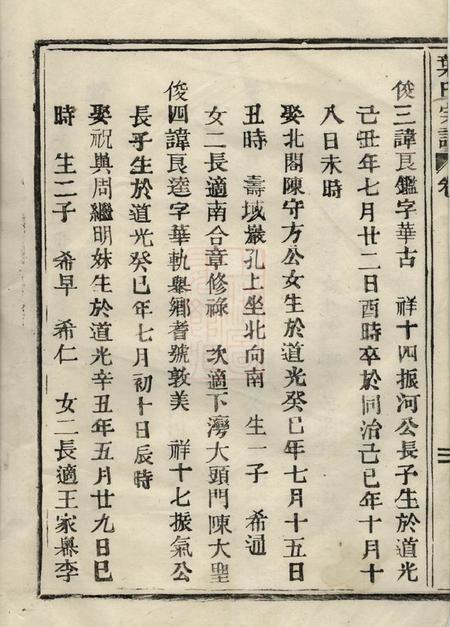 葉氏宗譜 卷
三
俊三諱良鑑字華古 祥十四振河公長子生於道光
己丑年七月廿二日酉時卒於同治己巳年十月十
八日未時
娶北閣陳守方公女生於道光癸巳年七月十五日
丑時 壽域巖孔上坐北向南 生一子 希通
女二長適南合章修祿 次適下灣大頭門陳大聖
俊四諱良達字華軌舉鄉耆號敦美 祥十七振氣公
長子生於道光癸巳年七月初十日辰時
娶祝與周繼明妹生於道光辛丑年五月廿九日巳
時 生二子 希早 希仁 女二長適王家嶴李